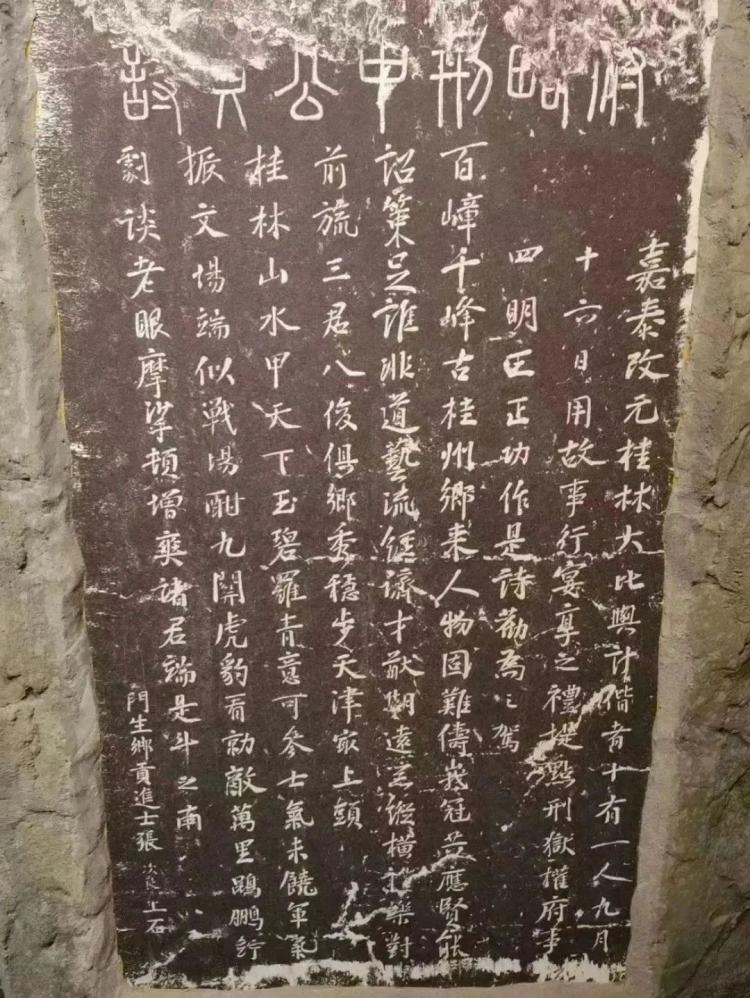 府略刑中公之詩
嘉泰改元桂林大比與計偕者十有一人九月
十六日用故事行宴享之禮提點刑獄權府事
四明王正功作是詩勸為之駕
百嶂千峰古桂州鄉來人物固難儔峩冠共應賢能
詔策足誰非道藝流經濟才猷期遠器縱橫禮樂對
前旒三君八俊俱鄉秀穩步天津最上頭
桂林山水甲天下玉碧羅青意可參士氣未饒軍氣
振文場端似戰場酣九關虎豹看勍敵萬里鵾鵬佇
劇談老眼摩挲頓增爽諸君端是斗之南
門生鄉貢進士張次良上石